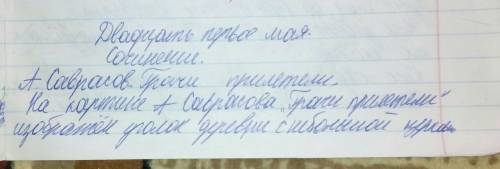 Двадцать первое мая.
Сочинение.
А. Саврасов. Грачи прилетели.
На картине А Саврасова „Грачи прилетели"
изображён уголок деревни с небольшой